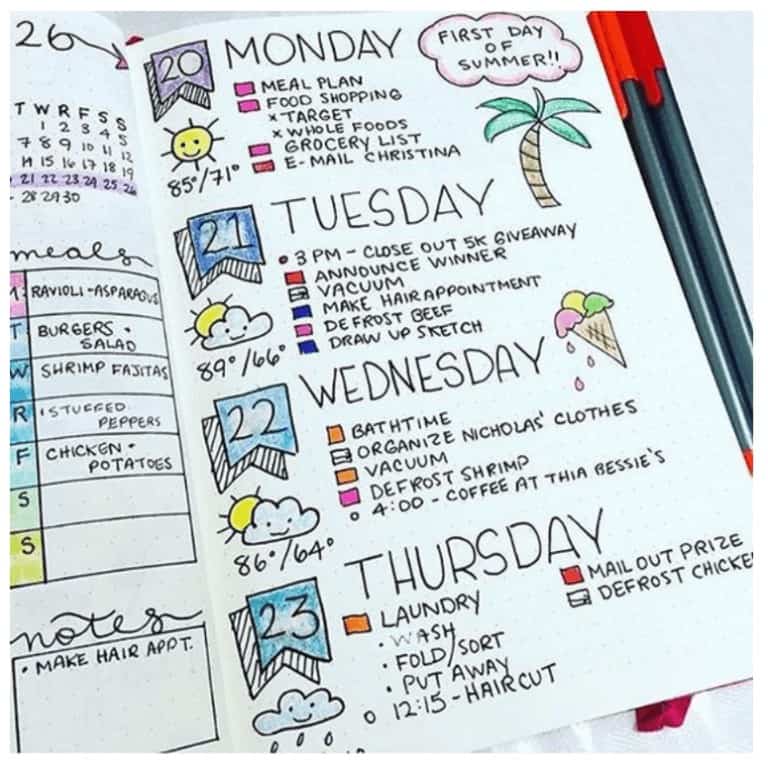 26
T W R F S S
1 2 3 4 5
7 8 9 10 11 12
14 15 16 17 18 19
21 22 23 24 25 26
28 29 30
meals
M RAVIOLI-ASPARAGUS
T BURGERS +
SALAD
W SHRIMP FAJITAS
R STUFFED
PEPPERS
F CHICKEN +
POTATOES
S
S
notes
• MAKE HAIR APPT.
20 MONDAY
FIRST DAY
OF
SUMMER!!
MEAL PLAN
FOOD SHOPPING
x TARGET
x WHOLE FOODS
GROCERY LIST
E-MAIL CHRISTINA
85°/71°
21 TUESDAY
3 PM - CLOSE OUT 5K GIVEAWAY
ANNOUNCE WINNER
VACUUM
MAKE HAIR APPOINTMENT
DEFROST BEEF
DRAW UP SKETCH
89°/66°
22 WEDNESDAY
BATHTIME
ORGANIZE NICHOLAS' CLOTHES
VACUUM
DEFROST SHRIMP
4:00 - COFFEE AT THIA BESSIE'S
86°/64°
23 THURSDAY
LAUNDRY
• WASH
• FOLD/SORT
• PUT AWAY
12:15 - HAIRCUT
MAIL OUT PRIZE
DEFROST CHICKE